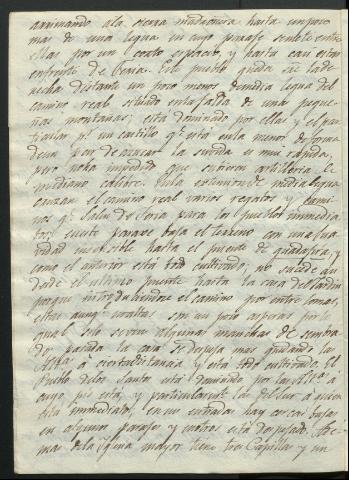 arrimando ala sierra mas asiera hasta un poco
mas de una legua en cuyo parage se le mete
ellas por un corto espacio, y hasta casi estar
enfrente de Feria. Este pueblo queda ala de
recha distante un poco menos de media legua del
camino real situado en la falda de una peque
ña montaña; esta dominado por ellas y el par
ticular pr. un castillo qe. está en la menor de forma
de un par de azucar la suvida es mui rapida,
pero no ha impedido que subieren artilleria de
mediano calibre. En la estension de media legua
cruzan el camino real varios regatos y cami
nos qe. salen de Feria para los pueblos inmedia
tos; desde parage baja el terreno con una sua
vidad insensible hasta el puente de guadajira, y
como el anterior está todo cultivado; no sucede asi
desde el ultimo puente hasta la casa del
porque introduciendose el camino por entre lomas,
estas aunqe. son un poco asperas por lo
qual solo se ven algunas manchas de sembra
do; pasada la casa se despeja mas quedando las
Altas á cierta distancia y está todo cultivado. El
Pueblo de los Santos está dominado por las Altas á
cuyo pie está, y particularmte. las de
dita inmediato, en su entrada hay cercas bajas
en algunos parages y en otros está despejado. Ade
mas de la Yglesia mayor tiene tres Capillas y un